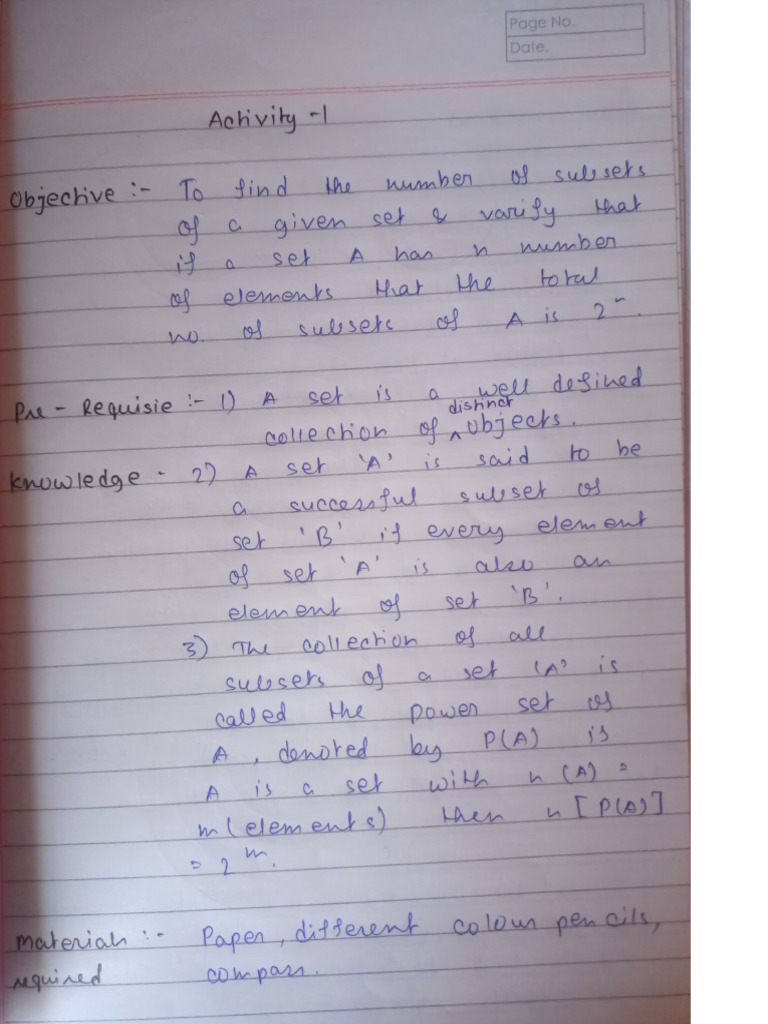 Page No.
Date.
Activity -1
Objective :- To find the number of subsets
of a given set & varify that
if a set A has n number
of elements that the total
no. of subsets of A is 2ⁿ.
Pre - Requisie :- 1) A set is a well defined
distinct
collection of ^ objects.
Knowledge - 2) A set 'A' is said to be
a successful subset of
set 'B' if every element
of set 'A' is also an
element of set 'B'.
3) The collection of all
subsets of a set 'A' is
called the power set of
A, denoted by P(A) is
A is a set with n(A) =
m(elements) then n[P(A)]
= 2ᵐ.
Materials :- Paper, different colour pencils,
required compass.